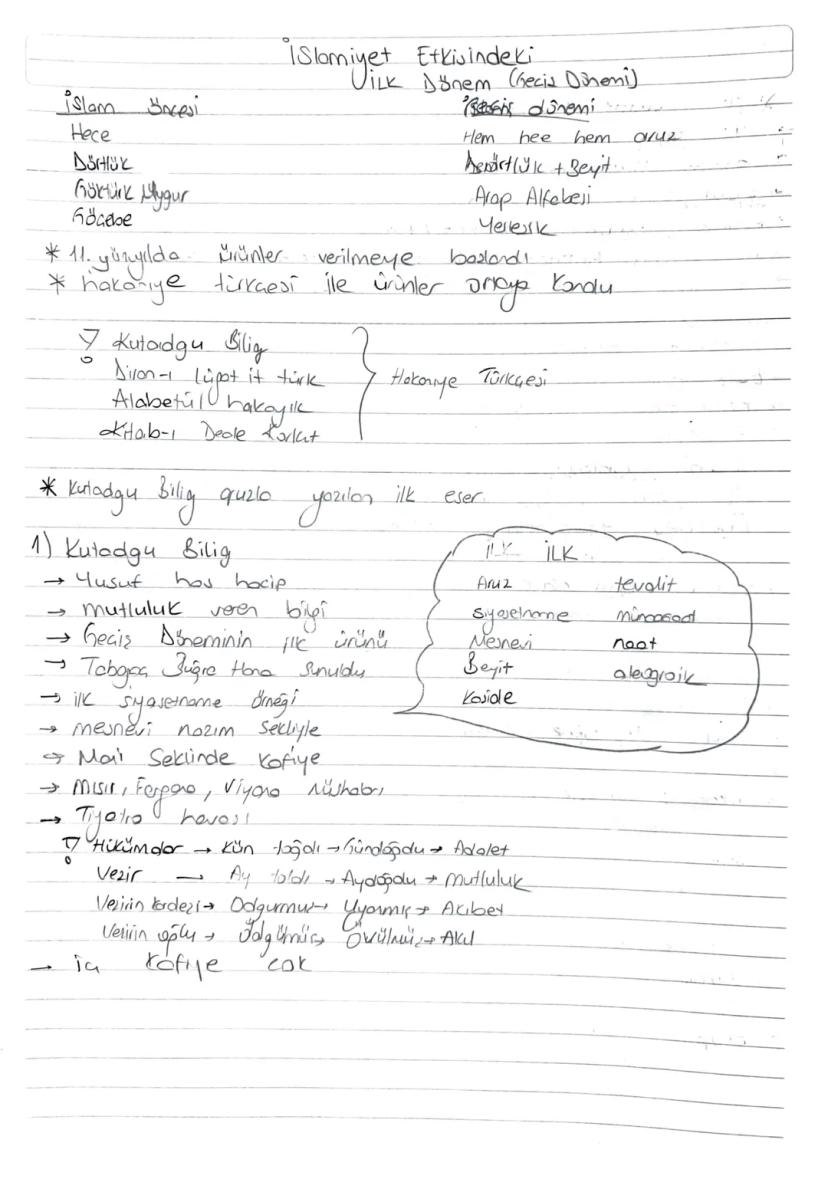 İslamiyet Etkisindeki
İLK Dönem (Geçiş Dönemi)
İslam öncesi Geçiş dönemi
Hece Hem hee hem aruz
Dörtlük Dörtlük + Beyit
Göktürk Uygur Arap Alfabesi
Göçebe Yerleşik
* 11. yüzyılda ürünler verilmeye başlandı
* hakaniye türkçesi ile ürünler ortaya kondu
! Kutadgu Bilig
Divan-ı lügat it türk Hakaniye Türkçesi
Atabetül hakayık
Kitab-ı Dede Korkut
* Kutadgu Bilig aruzla yazılan ilk eser
1) Kutadgu Bilig
→ Yusuf has hacip
→ mutluluk veren bilgi
→ Geçiş Döneminin ilk ürünü
→ Tabgaç Buğra Hana Sunuldu
→ ilk siyasetname örneği
→ mesnevi nazım şekliyle
→ Mani Şeklinde Kafiye
→ Mısır, Fergana, Viyana Nüshaları
→ Tiyatro havası
! Hükümdar → Kün toğdı → Gündoğdu → Adalet
Vezir → Ay toldı → Aydoğdu → Mutluluk
Vezirin kardeşi → Odgurmuş → Uyanmış → Akıbet
Vezirin oğlu → Ödgülmüş → Övülmüş → Akıl
→ iç kafiye çok
İLK İLK
Aruz tevhit
siyasetname münacaat
Mesnevi naat
Beyit alegorik
Kaside